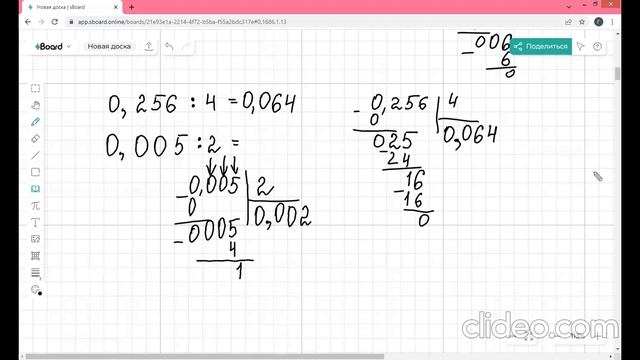 Новая доска | sBoard
app.sboard.online/boards/21e93e1a-2214-4f72-b5ba-f55a2bdc317e#0,1686,1.13
sBoard
Новая доска
Поделиться
006
- 6
0
0,256 : 4 = 0,064
0,005 : 2 =
- 0,256 | 4
0 0,064
025
- 24
16
- 16
0
- 0,005 | 2
0 0,002
- 0005
4
1
clideo.com